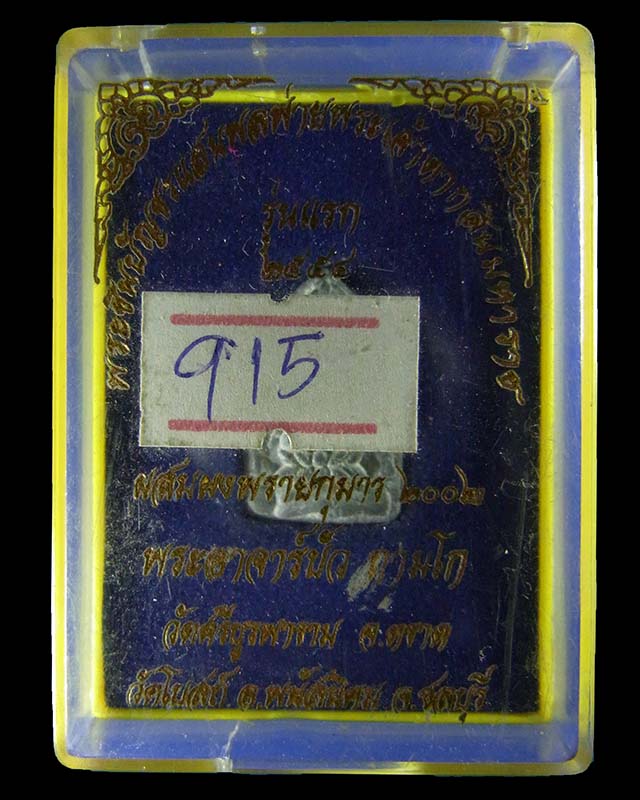 พระชัยบัญชาแสนพลพ่ายพระเจ้าตากสินมหาราช
รุ่นแรก
๒๕๕๔
915
ผสมผงพรายกุมาร ๒๐๐๒
พระอาจารย์บัว ถามโก
วัดศรีบูรพาราม จ.ตราด
วัดโบสถ์ อ.พนัสนิคม จ.ชลบุรี